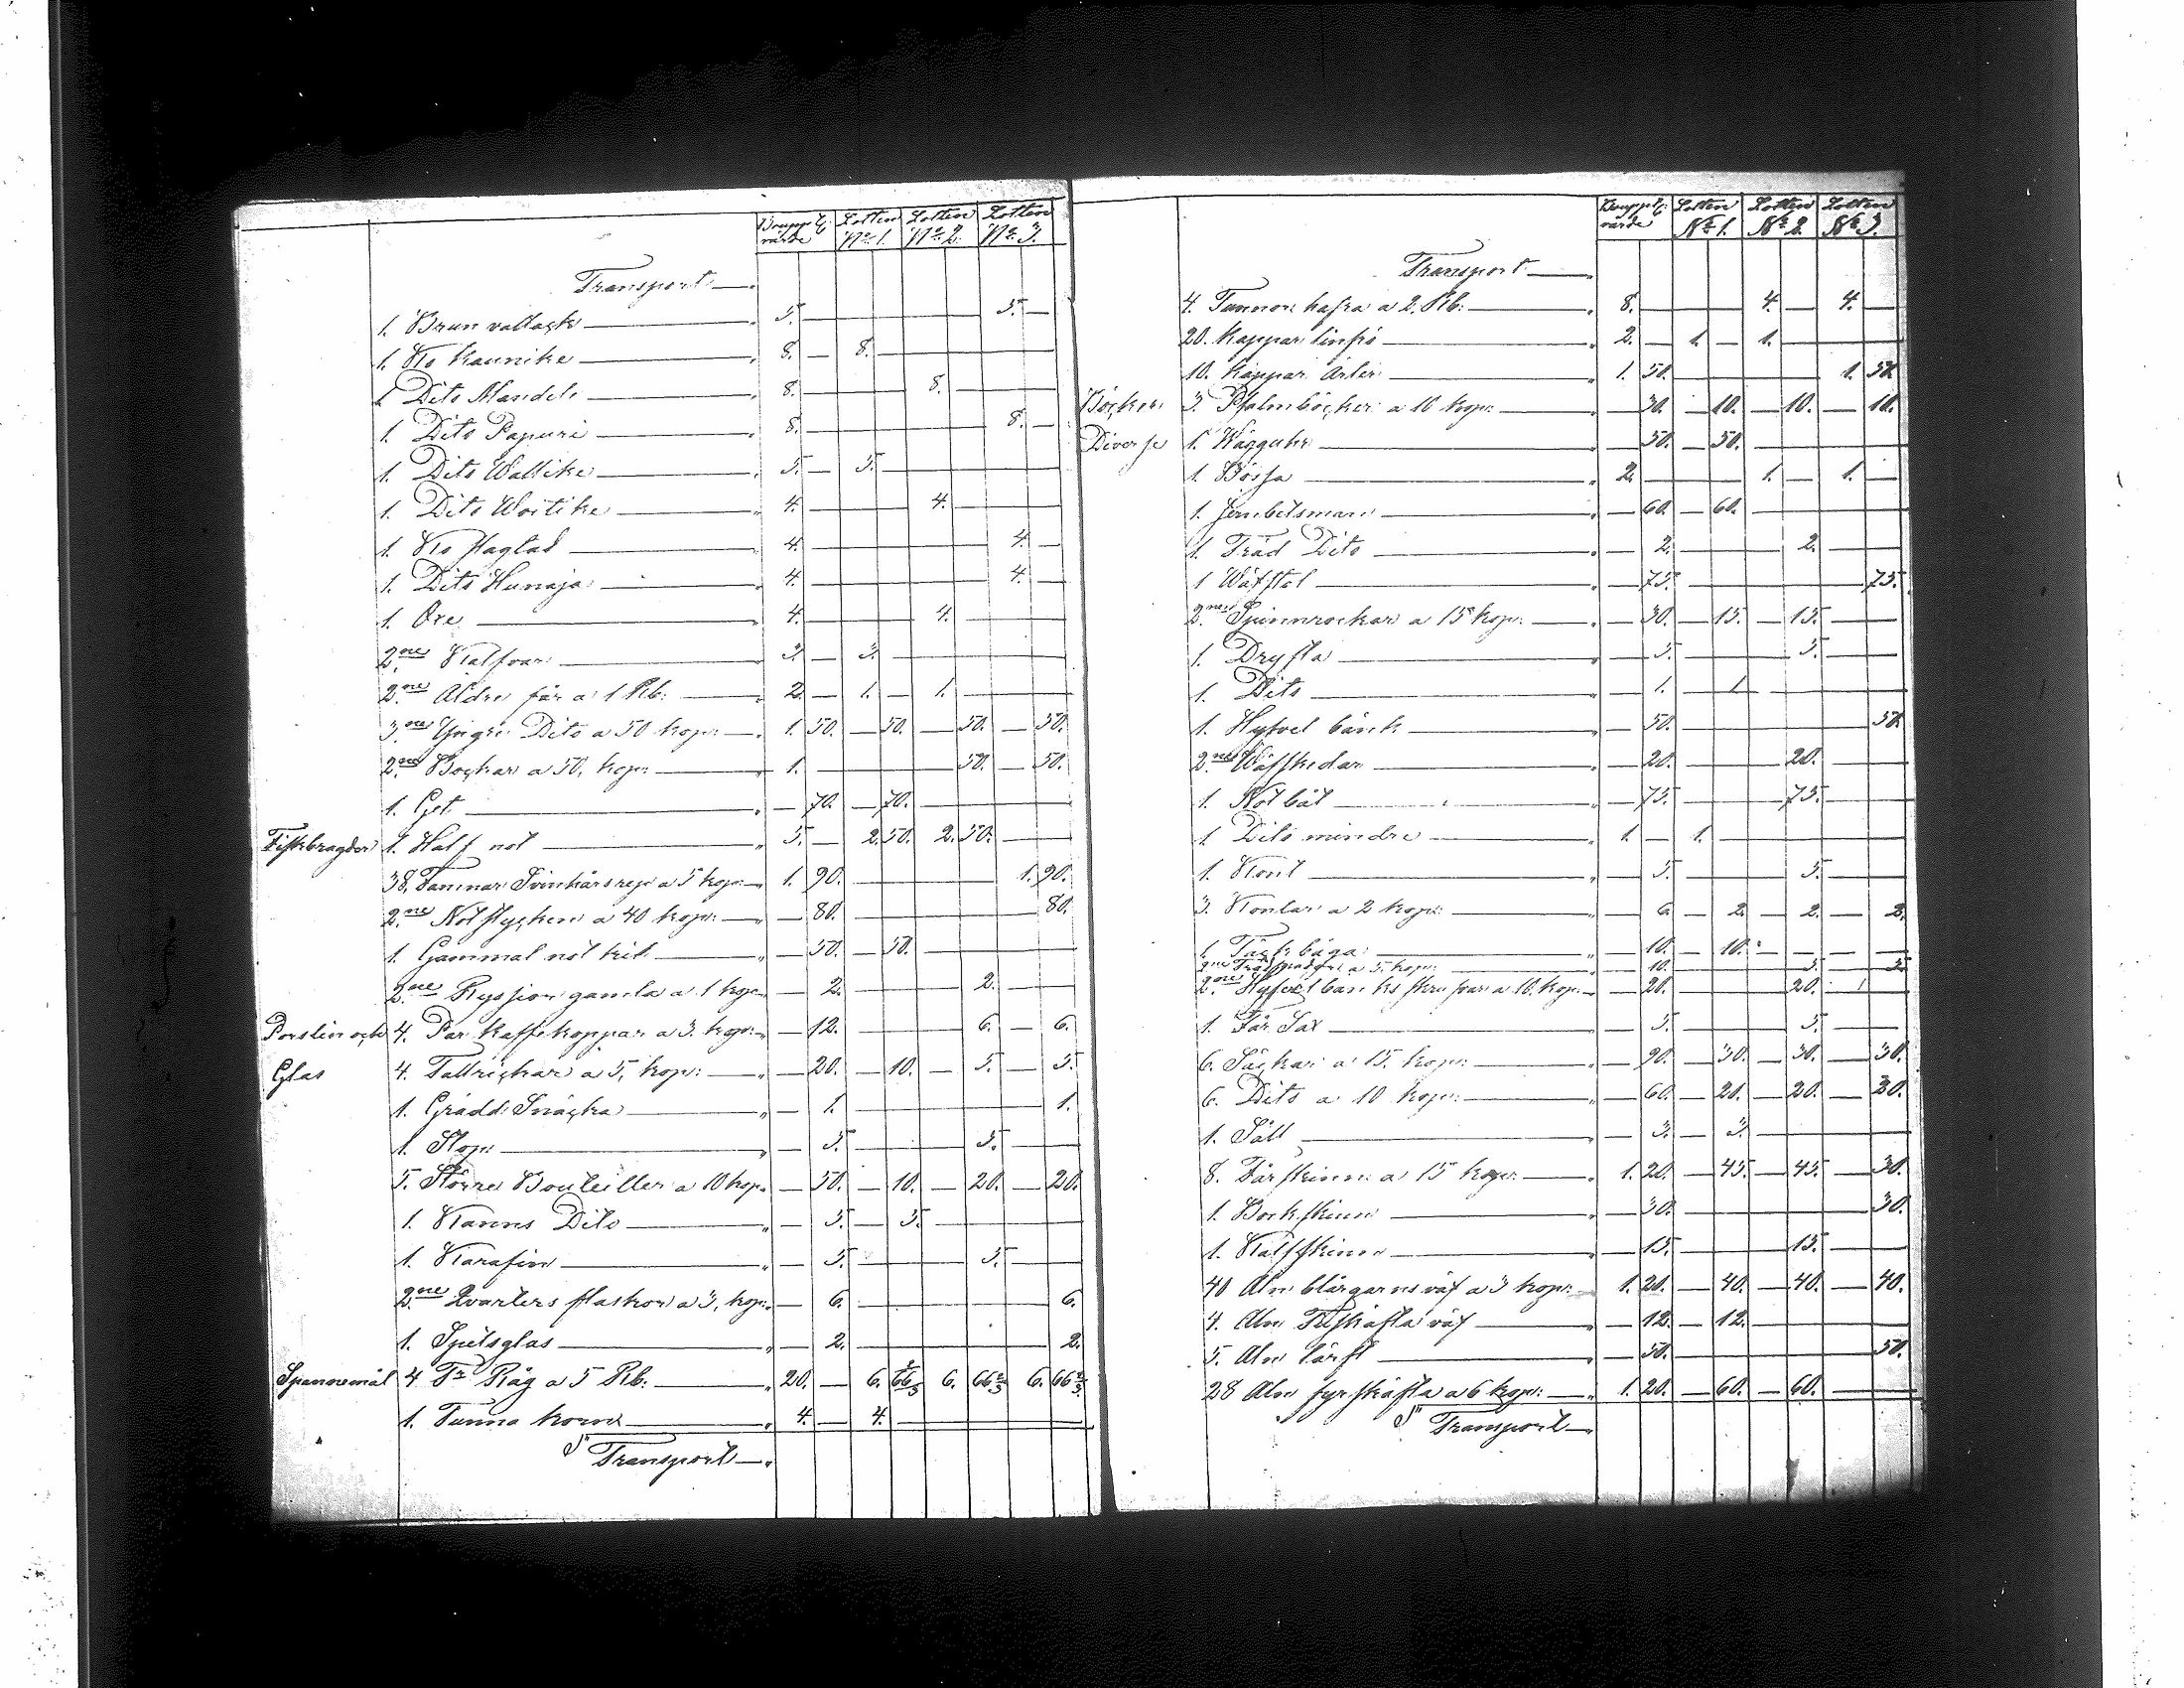 Bruppt: värde Lotten No 1. Lotten No 2. Lotten No 3.
Transport
1. Brun vallack 5. 5.
1. Ko Kaunike 8. 8.
1 Dito Mandeli 8. 8.
1. Dito Papuri 8. 8.
1. Dito Wallike 5. 5.
1. Dito Woitike 4. 4.
1. Ko Haglad 4. 4.
1. Dito Hunaja 4. 4.
1. Oxe 4. 4.
2.ne Kalfvar 3. 3.
2.ne Äldre får a 1 Rb: 2. 1. 1.
3.ne Yngre Dito a 50 kop: 1. 50. 50. 50. 50.
2.ne Bockar a 50, kop: 1. 50. 50.
1. Get 70. 70.
Fiskbragder 1. Half not 5. 2. 50. 2. 50.
38. Famnar Svinhårsrep a 5 kop: 1. 90. 1. 90.
2.ne Notstycken a 40 kop: 80. 80.
1. Gammal not kil 50. 50.
2.ne Ryssjor gamla a 1 kop: 2. 2.
Porslin och 4. Par kaffekoppar a 3. kop: 12. 6. 6.
Glas 4. Tallrickar a 5, kop: 20. 10. 5. 5.
1. Grädd Snäcka 1. 1.
1. Stop 5. 5.
5. Större Bouteiller a 10 kop. 50. 10. 20. 20.
1. Kanns Dito 5. 5.
1. Karafin 5. 5.
2.ne Qvarters flaskor a 3, kop: 6. 6.
1. Spetsglas 2. 2.
Spannemål 4. Tr Råg a 5 Rb: 20. 6. 66 2/3 6. 66 2/3 6. 66 2/3
1. Tunna korn 4. 4.
Sr Transport
Bruppt: värde Lotten No 1. Lotten No 2. Lotten No 3.
Transport
4. Tunnor hafra a 2. Rb: 8. 4. 4.
20. Kappar linfrö 2. 1. 1.
10. Kappar ärter 1. 50. 1. 50.
Böcker 3. Psalmböcker a 10 kop: 30. 10. 10. 10.
Diverse 1. Wägguhr 50. 50.
1. Bössa 2. 1. 1.
1. Jernbetsman 60. 60.
1. Träd Dito 2. 2.
1 Wäfstol 75. 75.
2.ne Spinnrockar a 15 kop: 30. 15. 15.
1. Dryfta 5. 5.
1. Dito 1. 1.
1. Hyfvel bänk 50. 50.
2.ne Wäfskedar 20. 20.
1. Not båt 75. 75.
1. Dito mindre 1. 1.
1. Kont 5. 5.
3. Kontar a 2 kop: 6. 2. 2. 2.
1. båga 10. 10.
2.ne a 5. kop: 10. 5. 5.
2.ne Hyfvelbänks skrufvar a 10. kop: 20. 20.
1. Får Sax 5. 5.
6. Säckar a 15. kop: 90. 30. 30. 30.
6. Dito a 10 kop: 60. 20. 20. 20.
1. Såll 3. 3.
8. Fårskinn a 15 kop: 1. 20. 45. 45. 30.
1. Bockskinn 30. 30.
1. Kalfskinn 15. 15.
40 Aln blårgarns väf a 3 kop: 1. 20. 40. 40. 40.
4. Aln Treskäfta väf 12. 12.
5. Aln lärft 50. 50.
28 Aln fyrskäfta a 6 kop: 1. 20. 60. 60.
Sr Transport